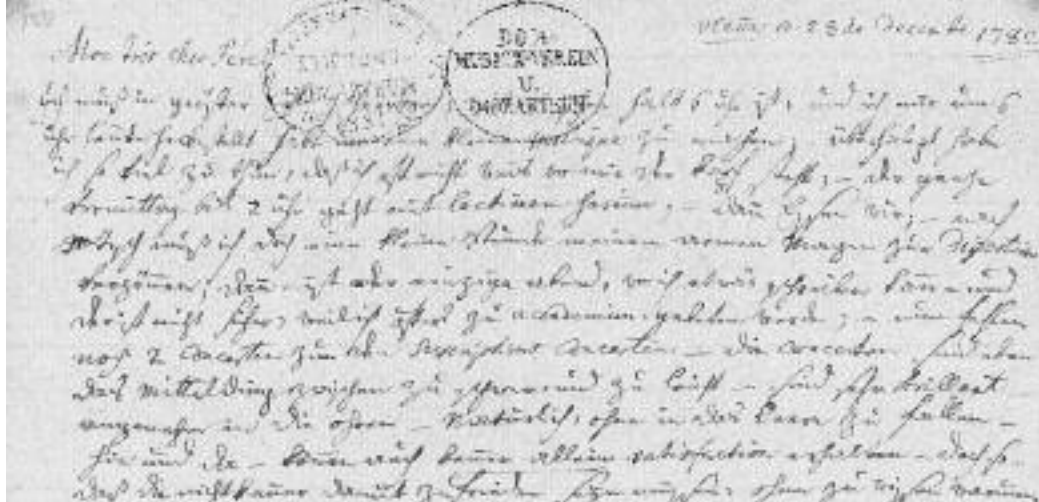 vienne ce 28 de Decembr: 1782
Mon très cher Père!
DOM-MUSIK-VEREIN U. MOZARTEUM
Ich muß in größter Eile schreiben, halb 6 uhr ist, und ich mir um 6
uhr leute herbestellt habe um eine kleine Musique zu machen; überhaupt habe
ich so viel zu thun, daß ich oft nicht weis wo mir der kopf steht; – der ganze
vormittag bis 2 uhr geht mit lectionen herum; – dan Essen wir; – nach
tisch muß ich doch eine kleine Stunde meinem armen Magen zur Digestion
vergönnen; dan ist der einzige abend, wo ich etwas schreiben kann – und
der ist nicht sicher, weil ich öfters zu academien gebeten werde; – nun fehlen
noch 2 Concerten zu den Suscriptions Concerten – die Concerten sind eben
das Mittelding zwischen zu schwer und zu leicht – sind sehr Brillant
angenehm in die ohren – Natürlich, ohne in das Leere zu fallen –
hie und da – können auch kenner allein satisfaction erhalten – doch so –
daß die nichtkenner damit zufrieden seyn müssen, ohne zu wissen warum